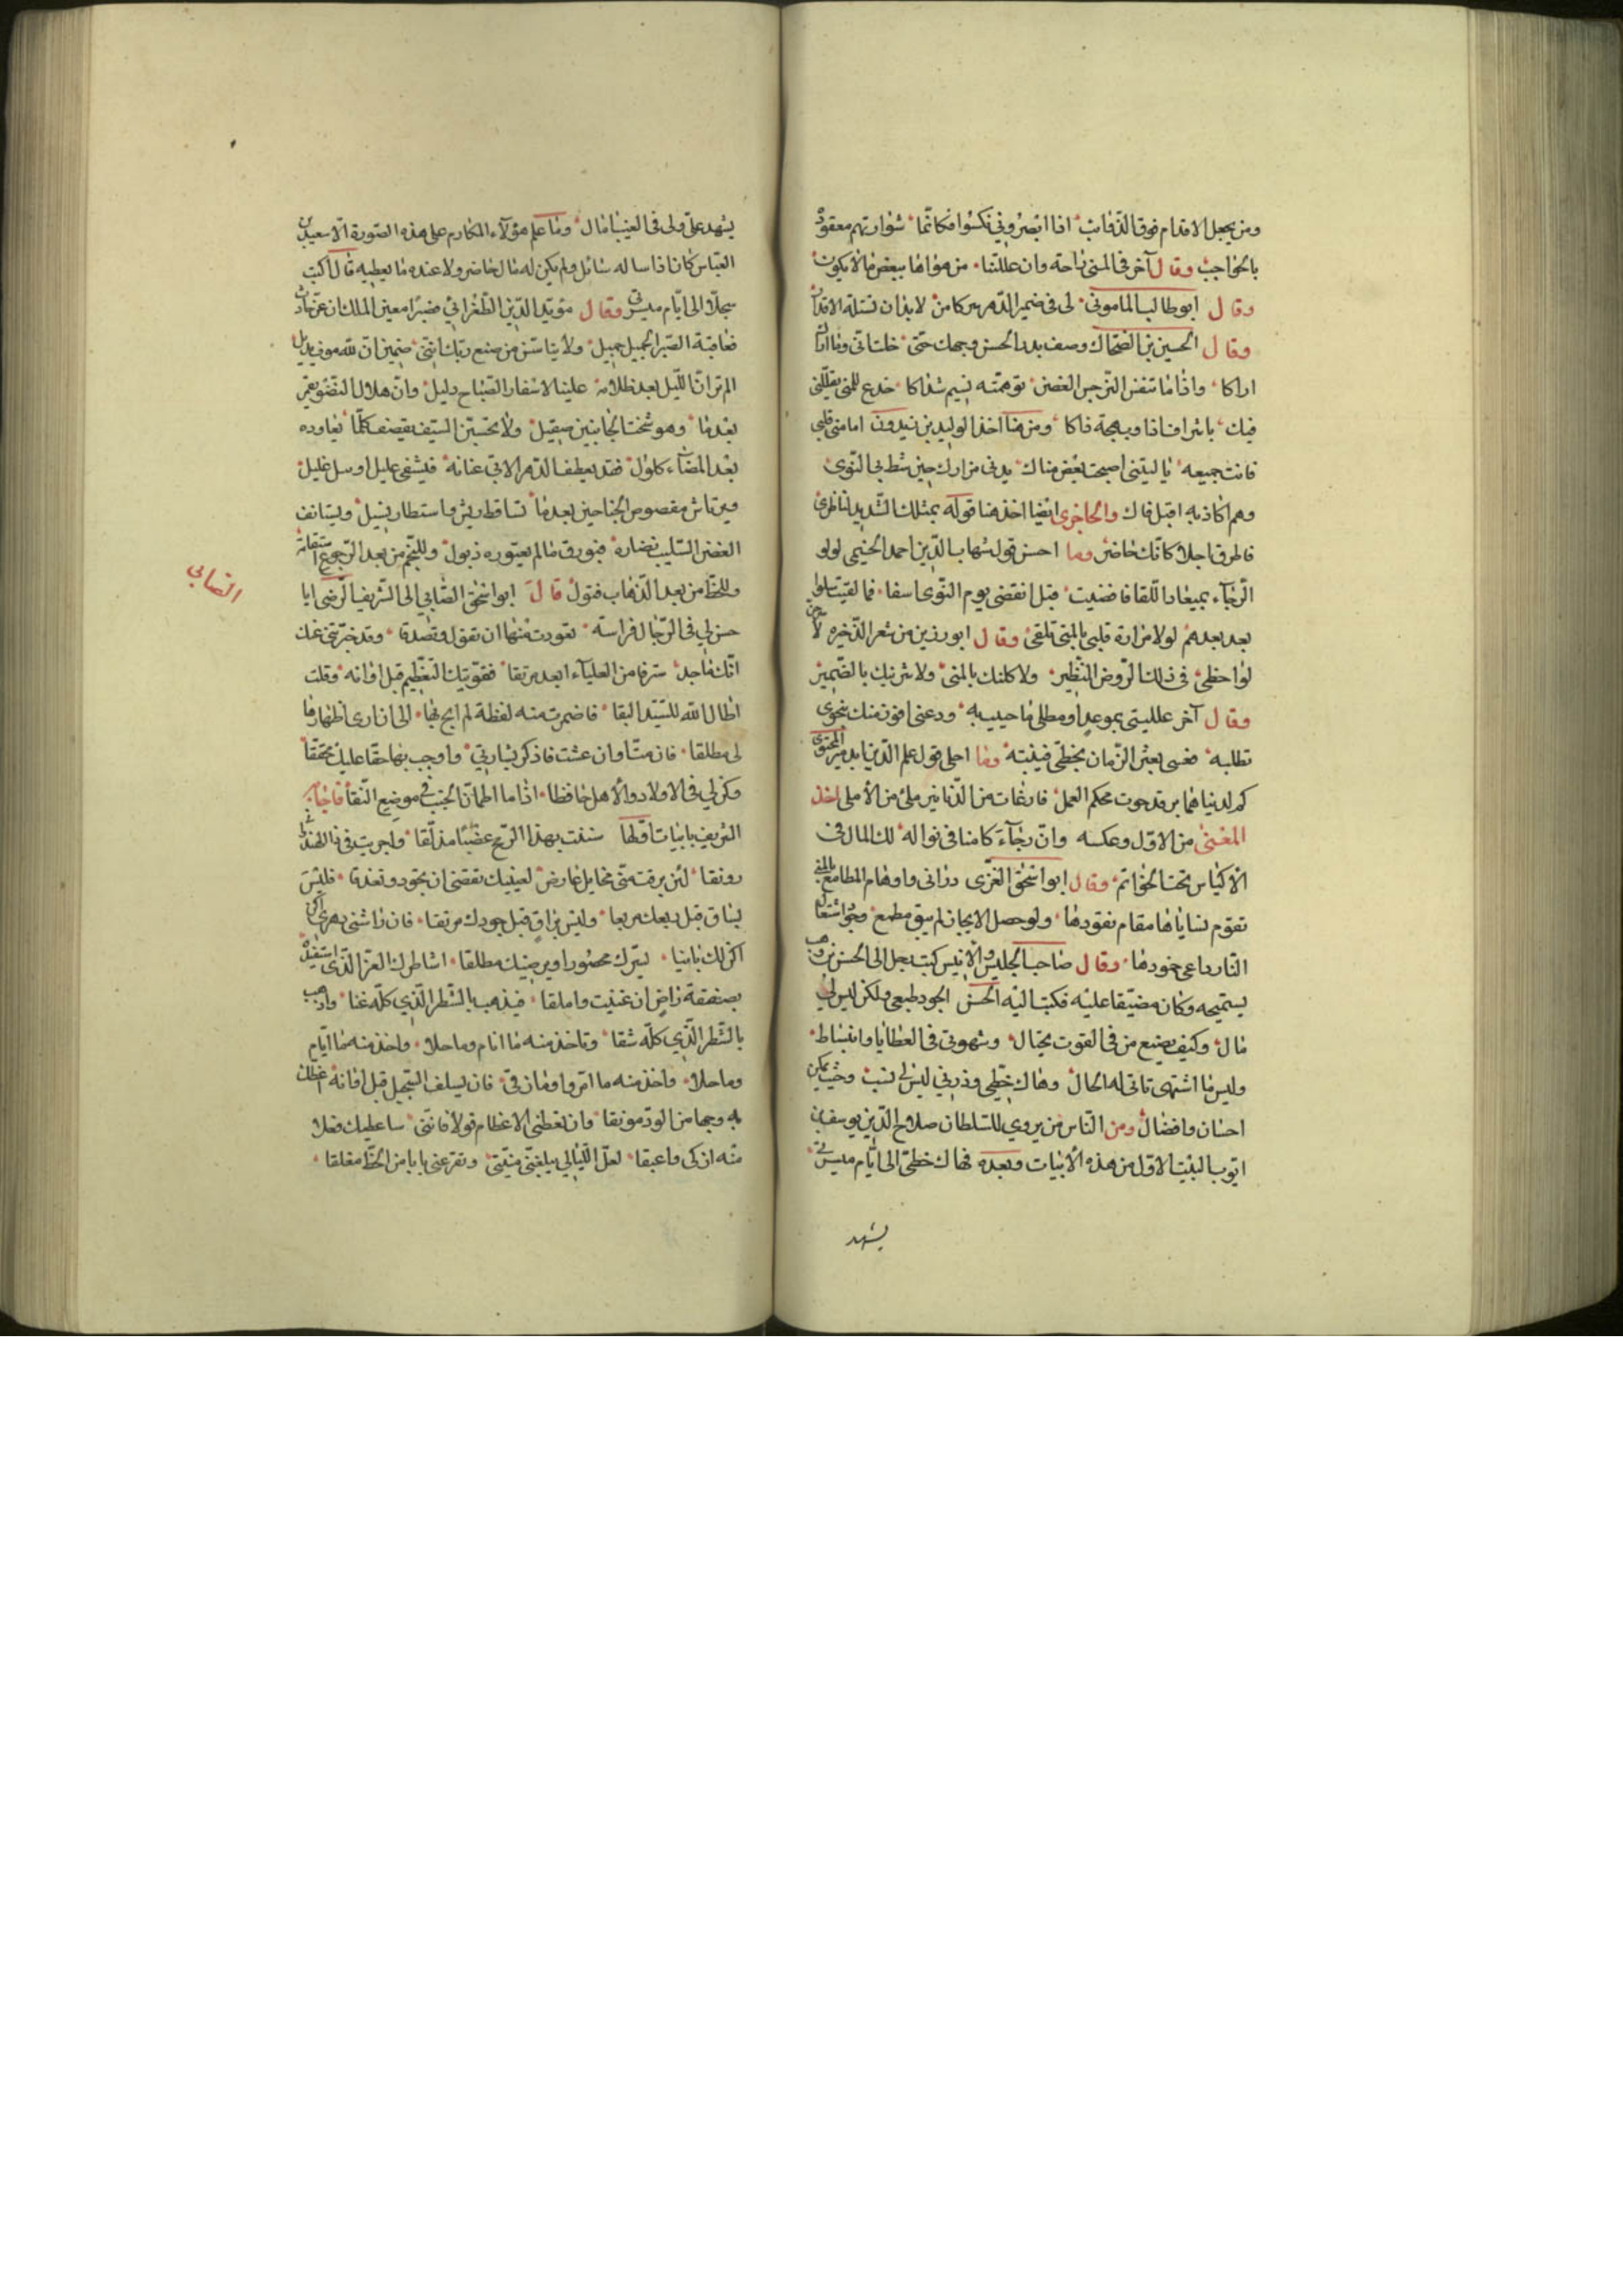 ومن يجعل الاقدام فوق الذوائب اذا ابصروني نكسوا فكانما شواربهم معقودة
بالحواجب وقال آخر في المنى راحة وان عللتنا من هواها ببعض ما لا يكون
وقال ابو طالب الماموني لي في ضمير الدهر سر كامن لا بد ان تستله الاقدار
وقال الحسين بن الضحاك وصف بدر الحسن وجهك حتى خلت اني وما اراك
اراكا واذا ما تنفس النرجس الغض توهمته نسيم شذاكا خدع للمنى تعللني
فيك باشراف ذا وبهجة ذاكا ومن هنا اخذ الوليد بن زيدون اما منى قلبي
فانت جميعه يا ليتني اصبحت بعض مناك يدني مزارك حين شط بي النوى
وهم اكاد به اقبل فاك والحاجري ايضا اخذ هنا قوله يمثلك الشديد لناظري
فاطرق اجلالا كانك حاضر وما احسن قول شهاب الدين احمد الخيمي لولو
الرجاء بميعاد اللقا قضيت قبل انقضى يوم النوى اسفا فما لقيت سلوا
بعد بعدهم لولا مزارة قلبي بالمنى تلقى وقال ابو رزين من شعر الذخيره لا
لواحظي في ذلك الروض النظير ولا كلنك بالمنى ولا شربنك بالضمير
وقال آخر علليني بموعد ومطلي ما حييت به ودعني افوز منك بنجوى
تطلبه فعسى يعثر الزمان بخطي فينبه وما احلى قول علم الدين ايدمر المحيوي
كم لدينا همابر قد حوت محكم العمل فارغات من الدنانير ملئ من الامل اخذ
المغنى من الاول وعكسه وان رجاء كامنا في نواله لك المال في
الاكياس تحت الخواتم وقال ابو اسحق الغزى دراني واوهام المطامع بالمنى
تقوم نساياها مقام نقودها ولو حصل الايجاز لم يبق مطمع وجو اشتعال
النار داعي خمودها وقال صاحب الجليس والانيس كتب رجل الى الحسن بن وهب
يستميحه وكان مضيقا عليه فكتب اليه الحسن الجود طبعي ولكن ليس لي
مال وكيف يصنع من في القوت يحتال وشهوتي في العطايا وانبساط
وليس ما اشتهى تاتي له الحال وهاك خطي وذرني ليس لي نسب وحيث يمكن
احسان وافضال ومن الناس من يروي للسلطان صلاح الدين يوسف بن
ايوب البيت الاول من هذه الابيات وبعده فهاك خطي الى ايام ميسرتي
يشهد
يشهد علي ولى في الغيب امال وما علم هؤلاء المكارم على هذه الصورة الا سعيد بن
العباس كان اذا ساله سائل ولم يكن له مال حاضر ولا عنده ما يعطيه قال اكتب
سجلا الى ايام ميسرتي وقال مؤيد الدين الطغرائي فصبرا معين الملك ان عن حادث
فعاقبة الصبر الجميل جميل ولا يتاسن من صنع ربك انني ضمين ان الله سوف يديل
الم تر ان الليل بعد ظلامه علينا لاسفار الصباح دليل وان هلال النضو يقمر
بعدما وهو شخت الجانبين ضئيل ولا تحسبن السيف يقصف كلما تعاوده
بعد المضاء كلول فقد يعطف الدهر الابي عنانه فيشفى عليل او يبل غليل
ويرتاش مقصوص الجناحين بعدما تساقط ريش واستطار نسيل ويستانف
الغصن السليب نضاره فيورق ما لم يعتوره ذبول وللنجم من بعد الرجوع استقامة
وللحظ من بعد الذهاب قفول قال ابو اسحق الصابي الى الشريف الرضى ابا
حسن لي في الرجال فراسة تعودت منها ان تقول وتصدقا وقد خبرتني عنك
انك ماجد سترقا من العلياء ابعد مرتقا فوفيتك التعظيم قبل اوانه وقلت
اطال الله للسيد البقا فاضمرت منه لفظة لم ابح بها الى ان ارى اظهارها
لي مطلقا فان مت او ان عشت فاذكر بشارتي واوجب بها حقا عليك محققا
وكن لي في الاولاد والاهل حافظا اذا ما اطمان الجنب في موضع النقا فاجابه
الشريف بابيات اولها سننت بهذا الريح عضبا مذلقا واجريت في ذا الهندواني
رونقا لئن برقت مني مخايل عارض لعينيك تقضي ان يجود ويغدقا فليس
بساق قبل ربعك مربعا وليس براق قبل جودك مرتقا فان راشني دهري اكن
اكن لك بانيا يسرك محصورا ويرضيك مطلقا اشاطرك العز الذي استفيده
بصفقة راض ان غنيت واملقا فتذهب بالشطر الذي كله غنا واذهب
بالشطر الذي كله شقا وتاخذ منه ما انام وما حلا واخذ منه ما ايام
وما حلا واخذ منه ما امر وما فان يسلف التبجيل قبل اوانه اعظك
به وجها من الود مونقا وان تعطني الاعظام قولا فانني ساعطيك فعلا
منه ازكى واعبقا لعل الليالي يبلغني منيتي وتقرعني بابا من الحظ مغلقا
الصابى